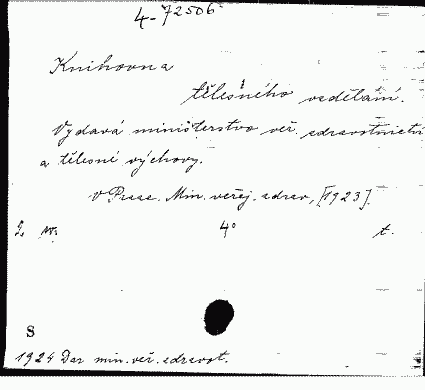 4-72506
Knihovna
tělesného vzdělání.
Vydává ministerstvo veř. zdravotnictví
a tělesné výchovy.
V Praze. Min. veřej. zdrav, [1923].
4° t.
S
1924 Dar min. veř. zdravot.